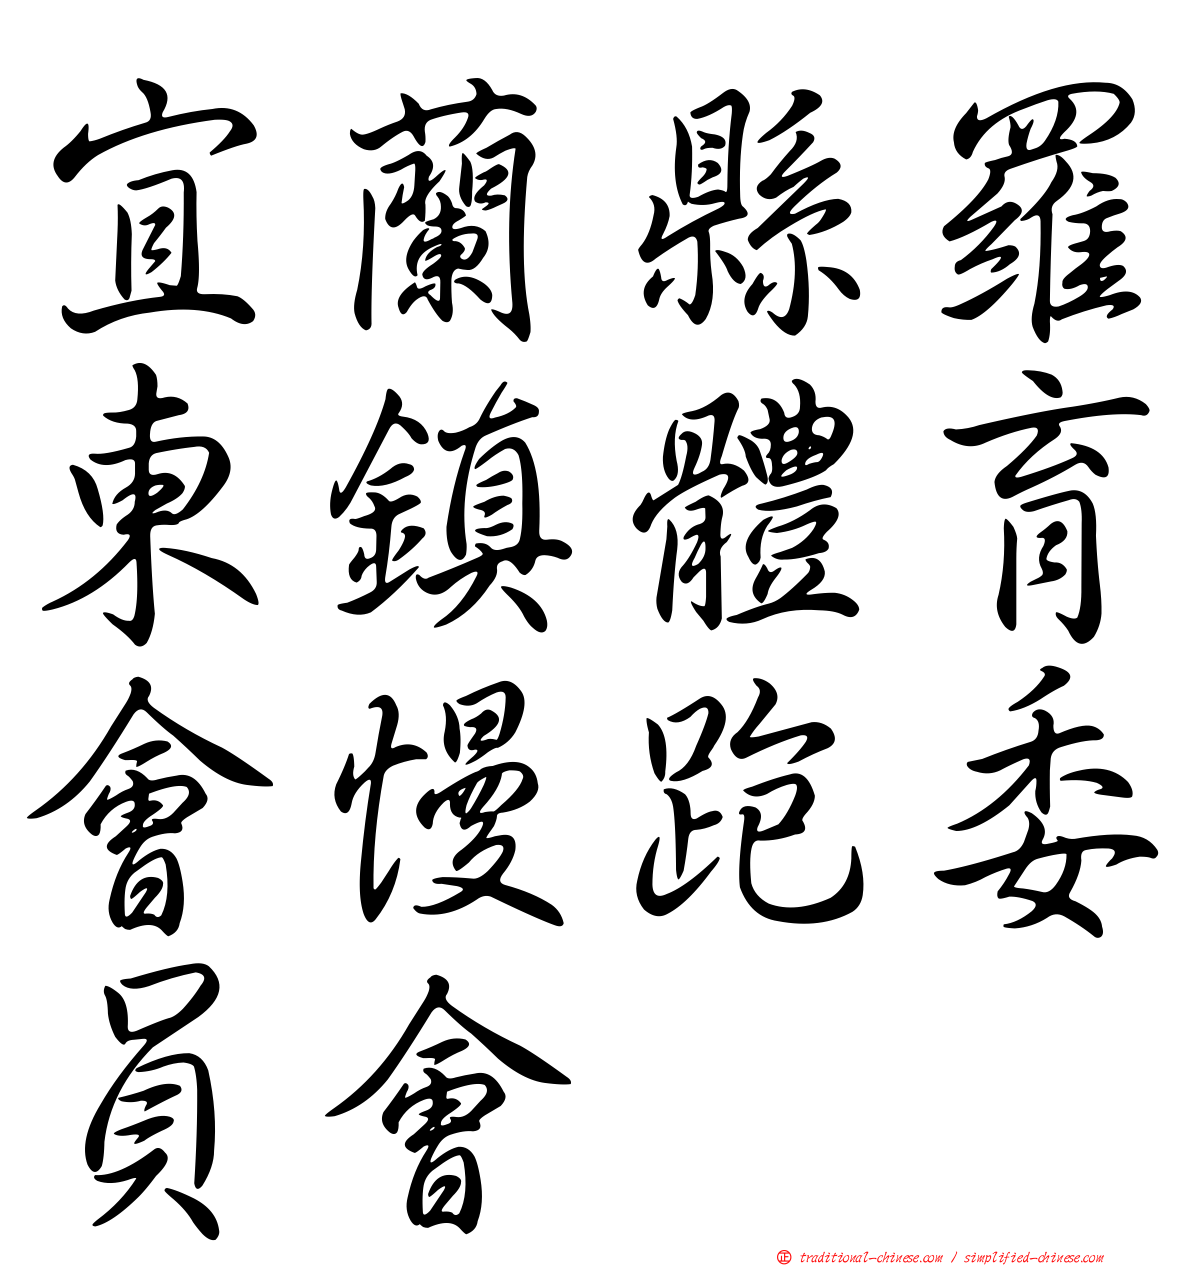 宜蘭縣羅
東鎮體育
會慢跑委
員會
正 traditional-chinese.com / simplified-chinese.com